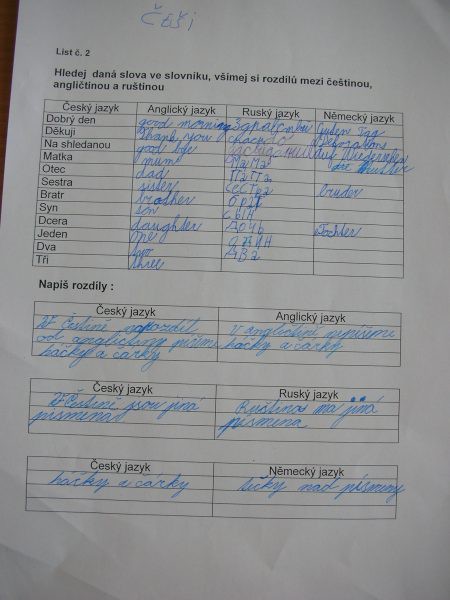 Češi
List č. 2
Hledej daná slova ve slovníku, všímej si rozdílů mezi češtinou,
angličtinou a ruštinou
Český jazyk Anglický jazyk Ruský jazyk Německý jazyk
Dobrý den good morning Guten Tag
Děkuji thank you
Na shledanou good bye
Matka mum мама die Mutter
Otec dad папа
Sestra sister сестра
Bratr brother брат bruder
Syn son сын
Dcera daughter дочь Tochter
Jeden one один
Dva two два
Tři three
Napiš rozdíly :
Český jazyk Anglický jazyk
V češtině narozdíl V angličtině nepíšeme
od angličtiny píšeme háčky a čárky
háčky a čárky
Český jazyk Ruský jazyk
V Češtině jsou jiná Ruština má jiná
písmena písmena
Český jazyk Německý jazyk
háčky a čárky tečky nad písmeny